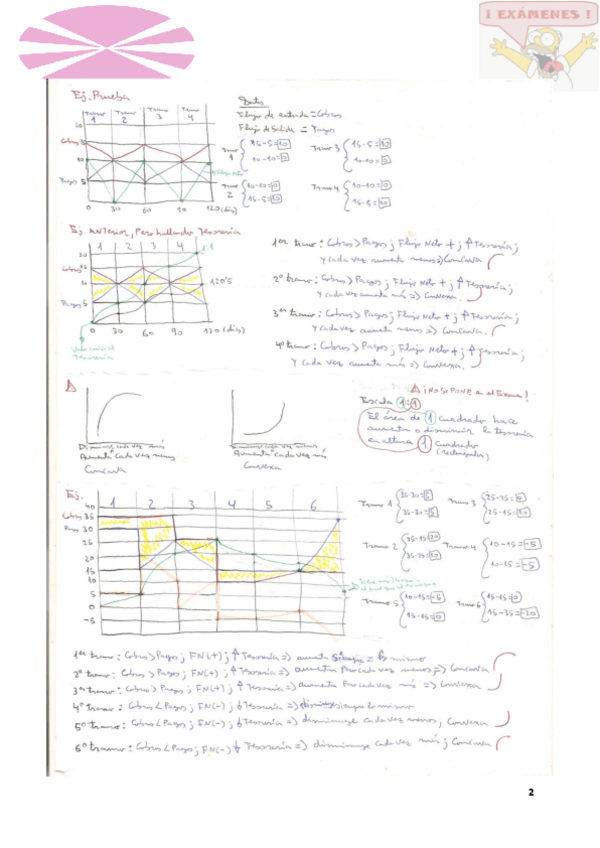 ¡ EXÁMENES !
Ej. Prueba
Tramo 1 Tramo 2 Tramo 3 Tramo 4
Datos
Flujo de entrada = Cobros
Flujo de Salida = Pagos
20
Cobros 15
10
Pagos 5
0 30 60 90 120 (días)
Tramo 1 { 15-5=10
10-10=0
Tramo 3 { 15-5=10
10-10=0
Tramo 2 { 10-10=0
15-5=10
Tramo 4 { 10-10=0
15-5=10
Ej. Anterior, Pero hallando Tesorería
1 2 3 4
20
Cobros 15
10
Pagos 5
0 30 60 90 120 (días)
Valor inicial Tesorería
1er tramo: Cobros > Pagos; Flujo Neto +; ↑ Tesorería;
y cada vez aumenta menos => Concava
2º tramo: Cobros > Pagos; Flujo Neto +; ↑ Tesorería;
y cada vez aumenta más => Convexa.
3er tramo: Cobros > Pagos; Flujo Neto +; ↑ Tesorería;
y cada vez aumenta menos => Concava.
4º tramo: Cobros > Pagos; Flujo Neto +; ↑ Tesorería;
y cada vez aumenta más => Convexa.
Disminuye cada vez más
Aumenta cada vez menos
Concava
Disminuye cada vez menos
Aumenta cada vez más
Convexa
¡No SE PONE en el Examen!
Escala 1:1
El área de 1 cuadrado hace
aumentar o disminuir la tesorería
en altura 1 cuadrado
(rectangular)
Ej.
1 2 3 4 5 6
40
Cobros 35
Pagos 30
25
20
15
10
5
0
-5
Tramo 1 { 35-30=5
35-30=5
Tramo 3 { 25-25=0
25-15=10
Tramo 2 { 35-15=20
35-25=10
Tramo 4 { 10-15=-5
10-15=-5
Tramo 5 { 10-15=-5
15-15=0
Tramo 6 { 15-15=0
15-35=-20
1er tramo: Cobros > Pagos; FN(+); ↑ Tesorería => aumenta siempre lo mismo
2º tramo: Cobros > Pagos; FN(+); ↑ Tesorería => aumenta Pero cada vez menos => Concava
3er tramo: Cobros > Pagos; FN(+); ↑ Tesorería => aumenta Pero cada vez más => Convexa
4º tramo: Cobros < Pagos; FN(-); ↓ Tesorería => disminuye siempre lo mismo
5º tramo: Cobros < Pagos; FN(-); ↓ Tesorería => disminuye cada vez menos; Convexa
6º tramo: Cobros < Pagos; FN(-) ↓ Tesorería => disminuye cada vez más; Concava
2